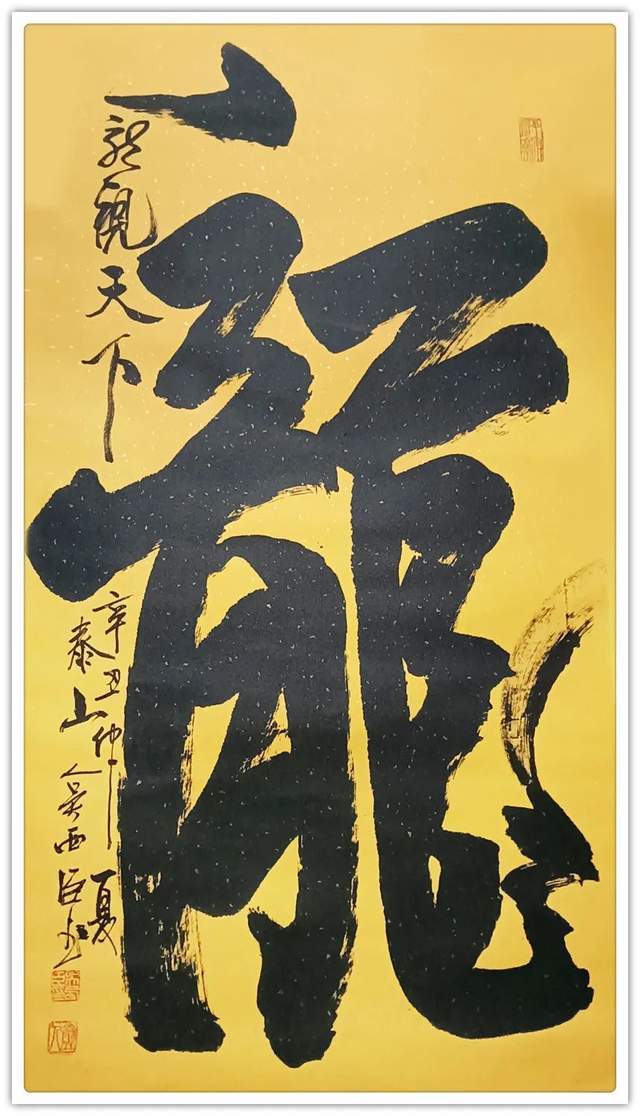 龍
龍觀天下
辛丑仲夏
泰山人吳西臣書